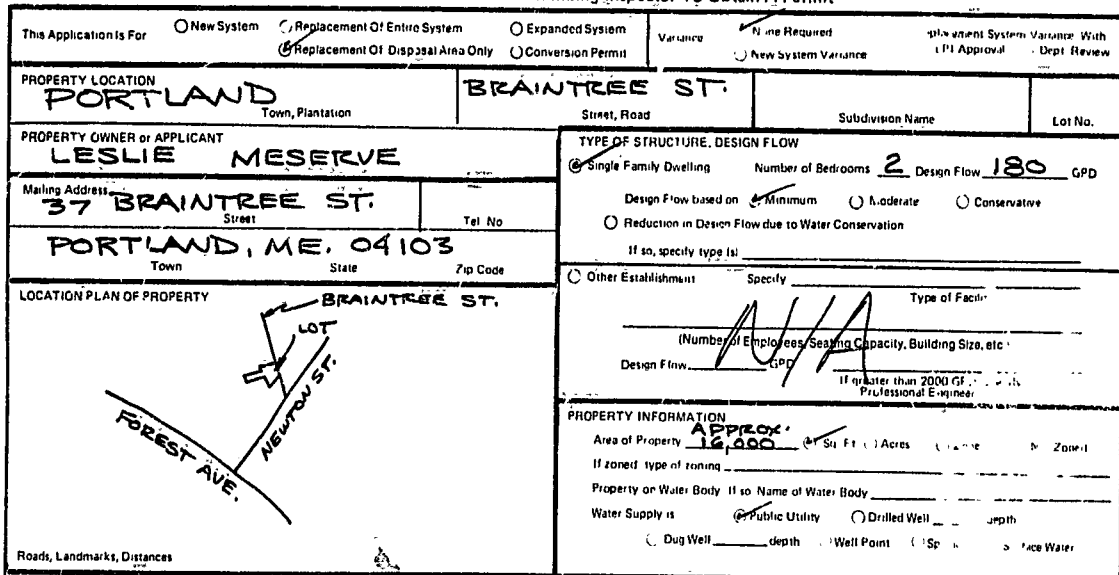 To Obtain A Permit
This Application Is For
New System
Replacement Of Entire System
Expanded System
Replacement Of Disposal Area Only
Conversion Permit
Variance
None Required
New System Variance
System Variance With
LPI Approval
Dept Review
PROPERTY LOCATION
PORTLAND
Town, Plantation
BRAINTREE ST.
Street, Road
Subdivision Name
Lot No.
PROPERTY OWNER or APPLICANT
LESLIE MESERVE
Mailing Address
37 BRAINTREE ST.
Street
Tel No
PORTLAND, ME. 04103
Town State Zip Code
LOCATION PLAN OF PROPERTY
BRAINTREE ST.
LOT
NEWTON ST.
FOREST AVE.
Roads, Landmarks, Distances
TYPE OF STRUCTURE, DESIGN FLOW
Single Family Dwelling Number of Bedrooms 2 Design Flow 180 GPD
Design Flow based on Minimum Moderate Conservative
Reduction in Design Flow due to Water Conservation
If so, specify type (s)
Other Establishment Specify
Type of
N/A
(Number of Employees, Seating Capacity, Building Size, etc
Design Flow GPD
If greater than 2000
Professional Engineer
PROPERTY INFORMATION
APPROX.
Area of Property 16,000 Sq. Ft Acres Zoned
If zoned type of zoning
Property on Water Body If so Name of Water Body
Water Supply is Public Utility Drilled Well depth
Dug Well depth Well Point Water